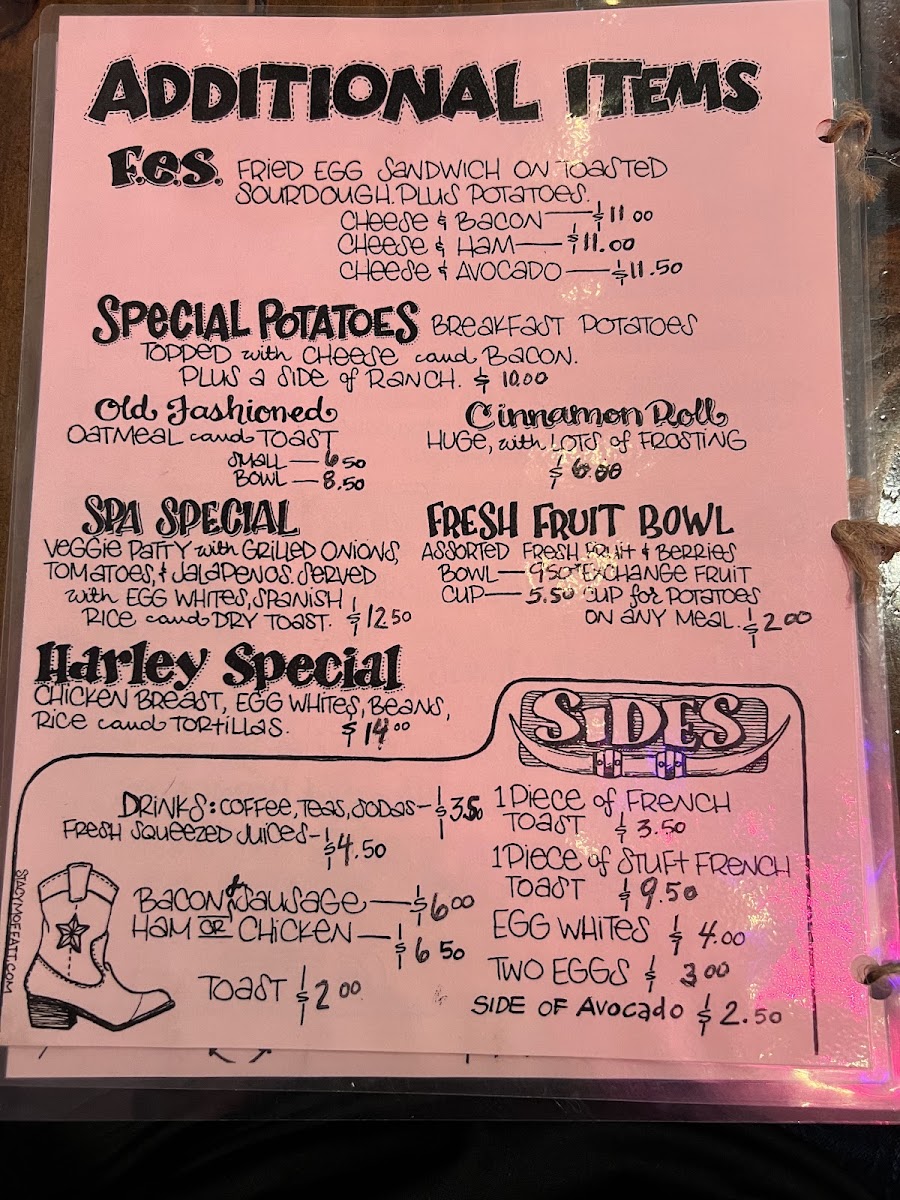 ADDITIONAL ITEMS
F.e.S. FRIED EGG SANDWICH ON TOASTED
SOURDOUGH. PLUS POTATOES.
CHEESE & BACON — $11 00
CHEESE & HAM — $11.00
CHEESE & AVOCADO — $11.50
SPECIAL POTATOES BREAKFAST POTATOES
TOPPED with CHEESE and BACON.
PLUS A SIDE of RANCH. $ 10.00
Old Fashioned
OATMEAL and TOAST
SMALL — 6.50
BOWL — 8.50
Cinnamon Roll
HUGE, with LOTS of FROSTING
$ 6.00
SPA SPECIAL
VEGGIE PATTY with GRILLED ONIONS,
TOMATOES, & JALAPENOS. SERVED
with EGG WHITES, SPANISH
RICE and DRY TOAST. $12.50
FRESH FRUIT BOWL
ASSORTED FRESH FRUIT & BERRIES
BOWL — 9.50 EXCHANGE FRUIT
CUP — 5.50 CUP for POTATOES
ON ANY MEAL. $2 00
Harley Special
CHICKEN BREAST, EGG WHITES, BEANS,
RICE and TORTILLAS. $14 00
SIDES
DRINKS: COFFEE, TEAS, SODAS — $3.50
FRESH SQUEEZED JUICES — $4.50
BACON & SAUSAGE — $6 00
HAM OR CHICKEN — $6 50
TOAST $2 00
1 PIECE of FRENCH
TOAST $3.50
1 PIECE of STUFT FRENCH
TOAST $9.50
EGG WHITES $ 4.00
TWO EGGS $ 3 00
SIDE OF Avocado $ 2.50
STACYMOFFATT.COM